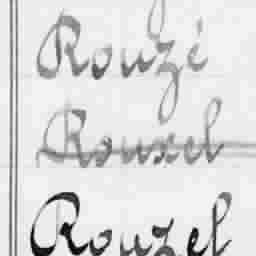 Rouzé
Rouxel
Rouzel